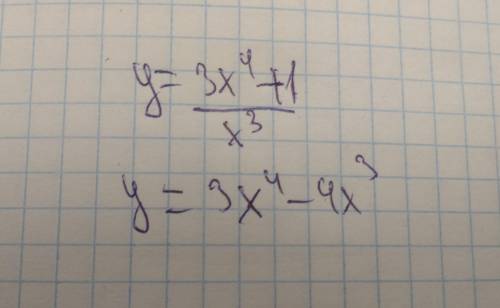 y = (3x⁴+1)/x³
y = 3x⁴-4x³